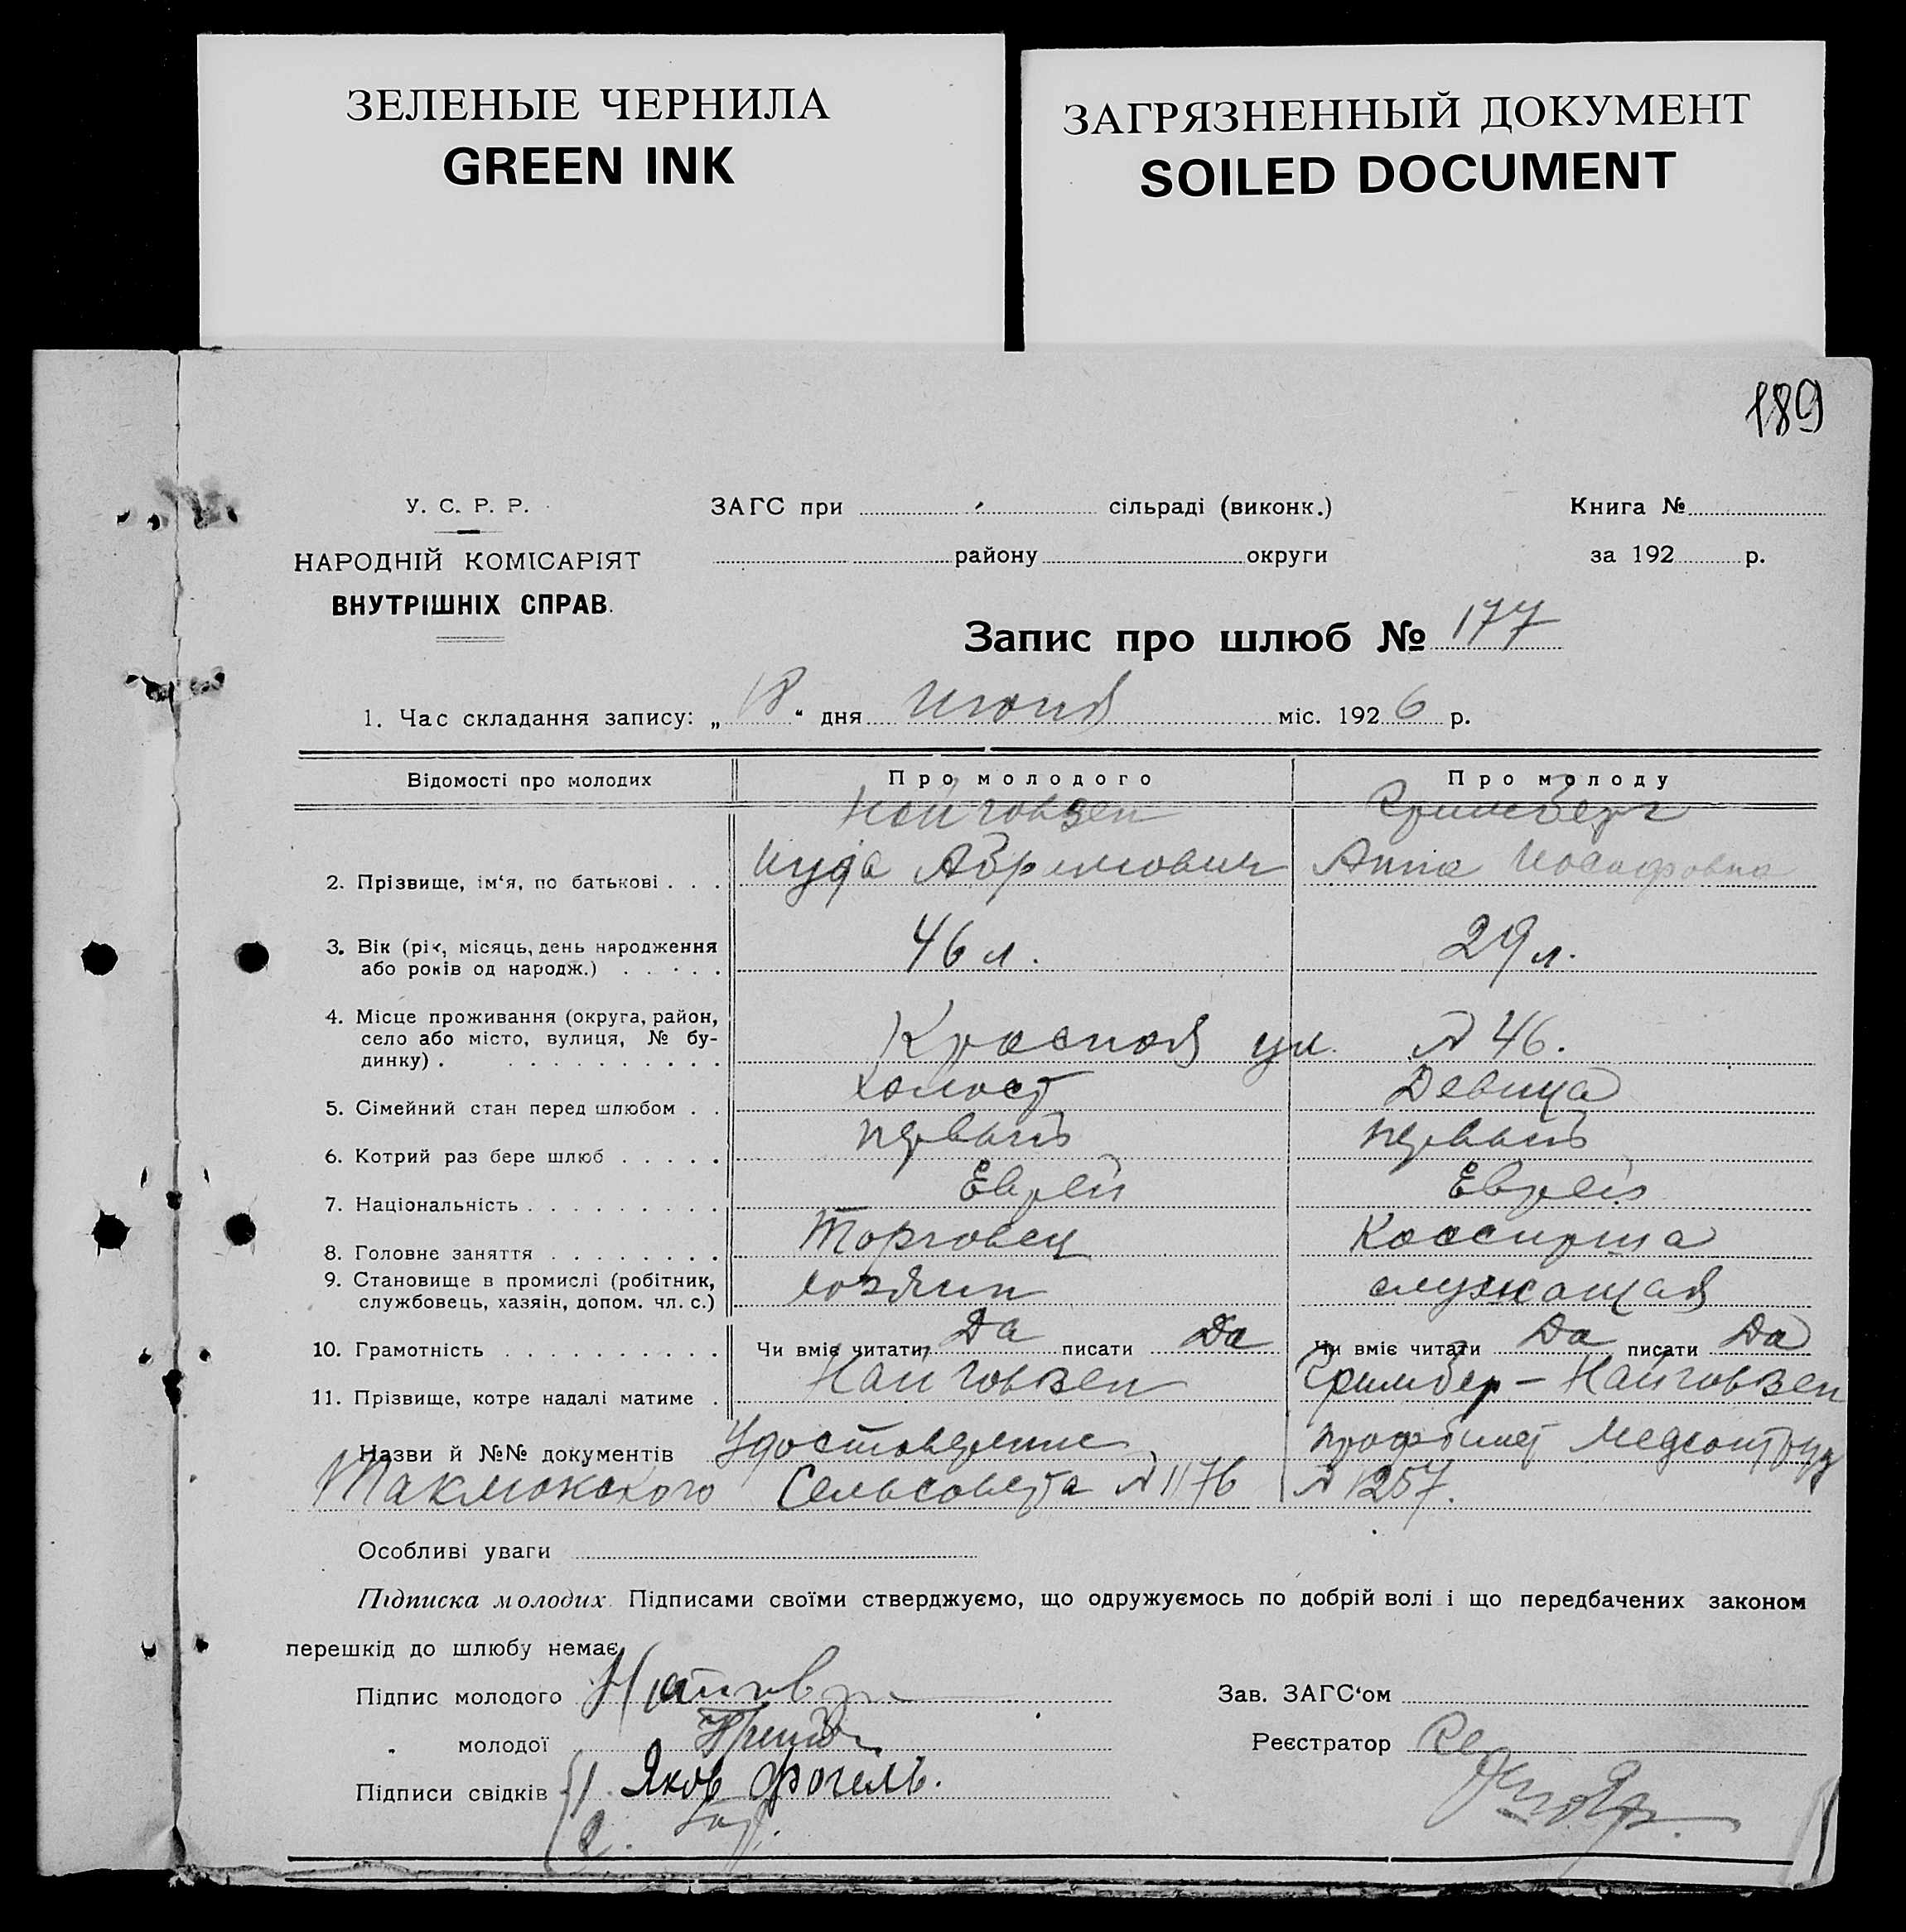 ЗЕЛЕНЫЕ ЧЕРНИЛА
GREEN INK
ЗАГРЯЗНЕННЫЙ ДОКУМЕНТ
SOILED DOCUMENT
189
У. С. Р. Р.
НАРОДНІЙ КОМІСАРІЯТ
ВНУТРІШНІХ СПРАВ.
ЗАГС при сільраді (виконк.)
району округи
Книга №
за 192 р.
Запис про шлюб № 177
1. Час складання запису: „ 18 “ дня июня міс. 192 6 р.
Відомості про молодих Про молодого Про молоду
Найговзен Гримберг
2. Прізвище, ім‘я, по батькові . . . Иуда Абрамович Анна Иосифовна
3. Вік (рік, місяць, день народження
або років од народж.) . . . . . 46 л. 29 л.
4. Місце проживання (округа, район,
село або місто, вулиця, № бу-
динку) . . . . . . . . . . . Красная ул. № 46.
5. Сімейний стан перед шлюбом . . холост Девица
6. Котрий раз бере шлюб . . . . . первый первый
7. Національність . . . . . . . . . Еврей Еврей
8. Головне заняття . . . . . . . . Торговец Кассирша
9. Становище в промислі (робітник,
службовець, хазяін, допом. чл. с.) хозяин служащая
10. Грамотність . . . . . . . . . . Чи вміє читати Да писати Да Чи вміє читати Да писати Да
11. Прізвище, котре надалі матиме . Найговзен Гримбер - Найговзен
Назви й №№ документів Удостоверение профбилет Медсантруд
Сельсовета № 1176 № 1257.
Особливі уваги
Підписка молодих. Підписами своїми стверджуємо, що одружуємось по добрій волі і що передбачених законом
перешкід до шлюбу немає
Підпис молодого
Зав. ЗАГС‘ом
„ молодої
Реєстратор
Підписи свідків 1. Яков Фогель.
2.